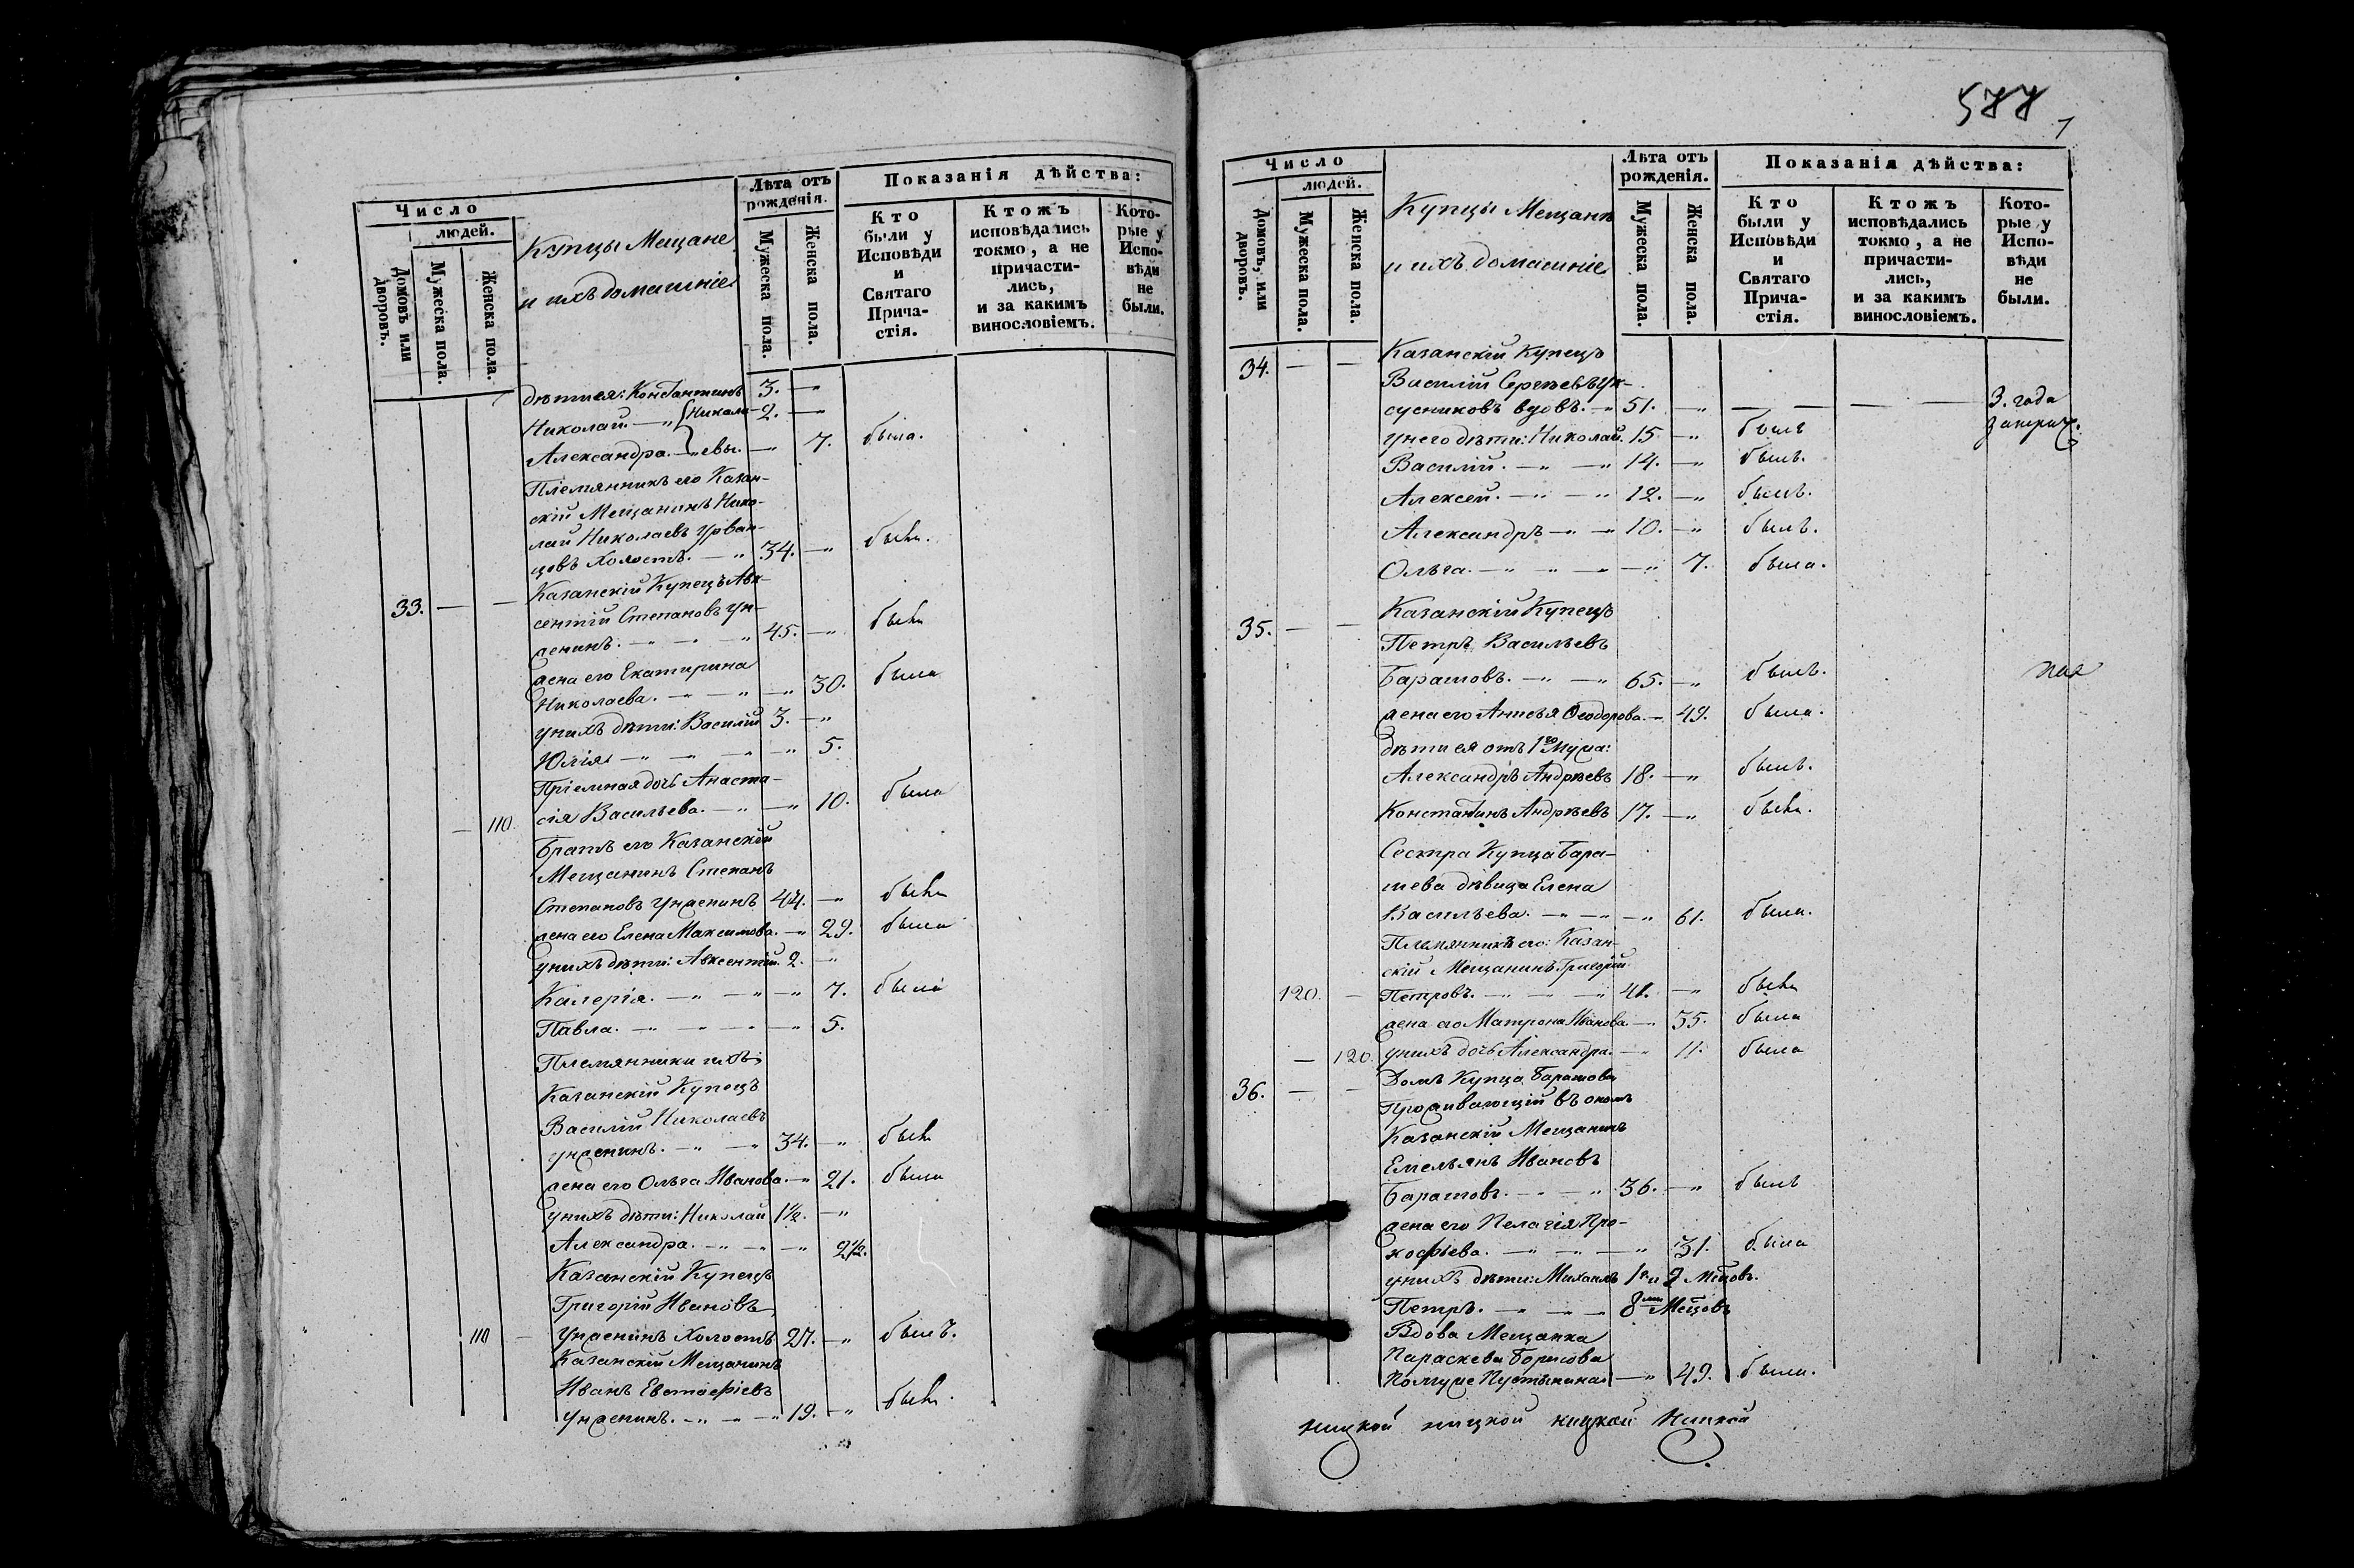 Число
людей.
Домовъ или дворовъ.
Мужеска пола.
Женска пола.
Купцы Мещане
и ихъ домашніе
Лѣта отъ рожденія.
Мужеска пола.
Женска пола.
Показанія дѣйства:
Кто были у Исповѣди и Святаго Причастія.
Ктожъ исповѣдались токмо, а не причастились, и за какимъ винословіемъ.
Которые у Исповѣди не были.
дѣти ея: Константинъ 3. — "
Николай. — " { Никола- 2. — "
Александра. — " евы. — 7. была.
Племянникъ его Казан-
скій Мещанинъ Нико-
лай Николаевъ Урван-
цовъ Холостъ. — " 34. — " былъ.
33. — — Казанскій Купецъ Авк-
сентій Степановъ Ун-
женинъ. — " — " 45. — " былъ
жена его Екатерина
Николаева. — " — " — " 30. была
у нихъ дѣти: Василій 3. — "
Юлія — " — " — " 5.
Пріемная дочь Анаста-
сія Васильева. — " — " 10. была
— 110.
Братъ его Казанскій
Мещанинъ Степанъ
Степановъ Унженинъ 44. — " былъ
жена его Елена Максимова. — " 29. была
у нихъ дѣти: Авксентій. 2. — "
Калерія. — " — " — " 7. была
Павла. — " — " — " 5.
Племянники ихъ:
Казанскій Купецъ
Василій Николаевъ
Унженинъ. — " — " 34. — " былъ
жена его Ольга Иванова. — " 21. была
у нихъ дѣти: Николай 1½. — "
Александра. — " — " — " 2½.
Казанскій Купецъ
Григорій Ивановъ
110 — Унженинъ Холостъ 27. — " былъ.
Казанскій Мещанинъ
Иванъ Евстафіевъ
Унженинъ. — " — " 19. — " былъ.
577
Число
людей.
Домовъ, или дворовъ.
Мужеска пола.
Женска пола.
Купцы Мещане
и ихъ домашніе
Лѣта отъ рожденія.
Мужеска пола.
Женска пола.
Показанія дѣйства:
Кто были у Исповѣди и Святаго Причастія.
Ктожъ исповѣдались токмо, а не причастились, и за какимъ винословіемъ.
Которые у Исповѣди не были.
34. — — Казанскій Купецъ
Василій Сергѣевъ Ук-
сусниковъ вдовъ. — " 51. — " — — — — 3. года
у него дѣти: Николай. 15 — " былъ
Василій. — " — " 14. — " былъ.
Алексей. — " — " 12. — " былъ.
Александръ — " — " 10. — " былъ.
Ольга. — " — " — " 7. была.
35. — — Казанскій Купецъ
Петръ Васильевъ
Барашовъ. — " — " 65. — " былъ.
жена его Анисья Ѳеодорова. — 49. была.
дѣти ея отъ 1го мужа:
Александръ Андрѣевъ 18. — " былъ.
Константинъ Андрѣевъ 17. — " былъ.
Сестра Купца Бара-
шева дѣвица Елена
Васильева. — " — " — " 61. была.
Племянникъ его: Казан-
скій Мещанинъ Григорій
120. — Петровъ. — " — " 41. — " былъ
жена его Матрона Иванова — " 35. была
— 120. у нихъ дочь Александра. — " 11. была
36. — — Домъ Купца Барашова
Проживающій въ ономъ
Казанскій Мещанинъ
Емельянъ Ивановъ
Барашовъ. — " — " 36. — " былъ
жена его Пелагія Про-
кофьева. — " — " — " 31. была
у нихъ дѣти: Михаилъ 1г. и 2 Мѣсцовъ.
Петръ. — " — " 8ми Мѣсцовъ
Вдова Мещанка
Параскева Борисова
49. была.